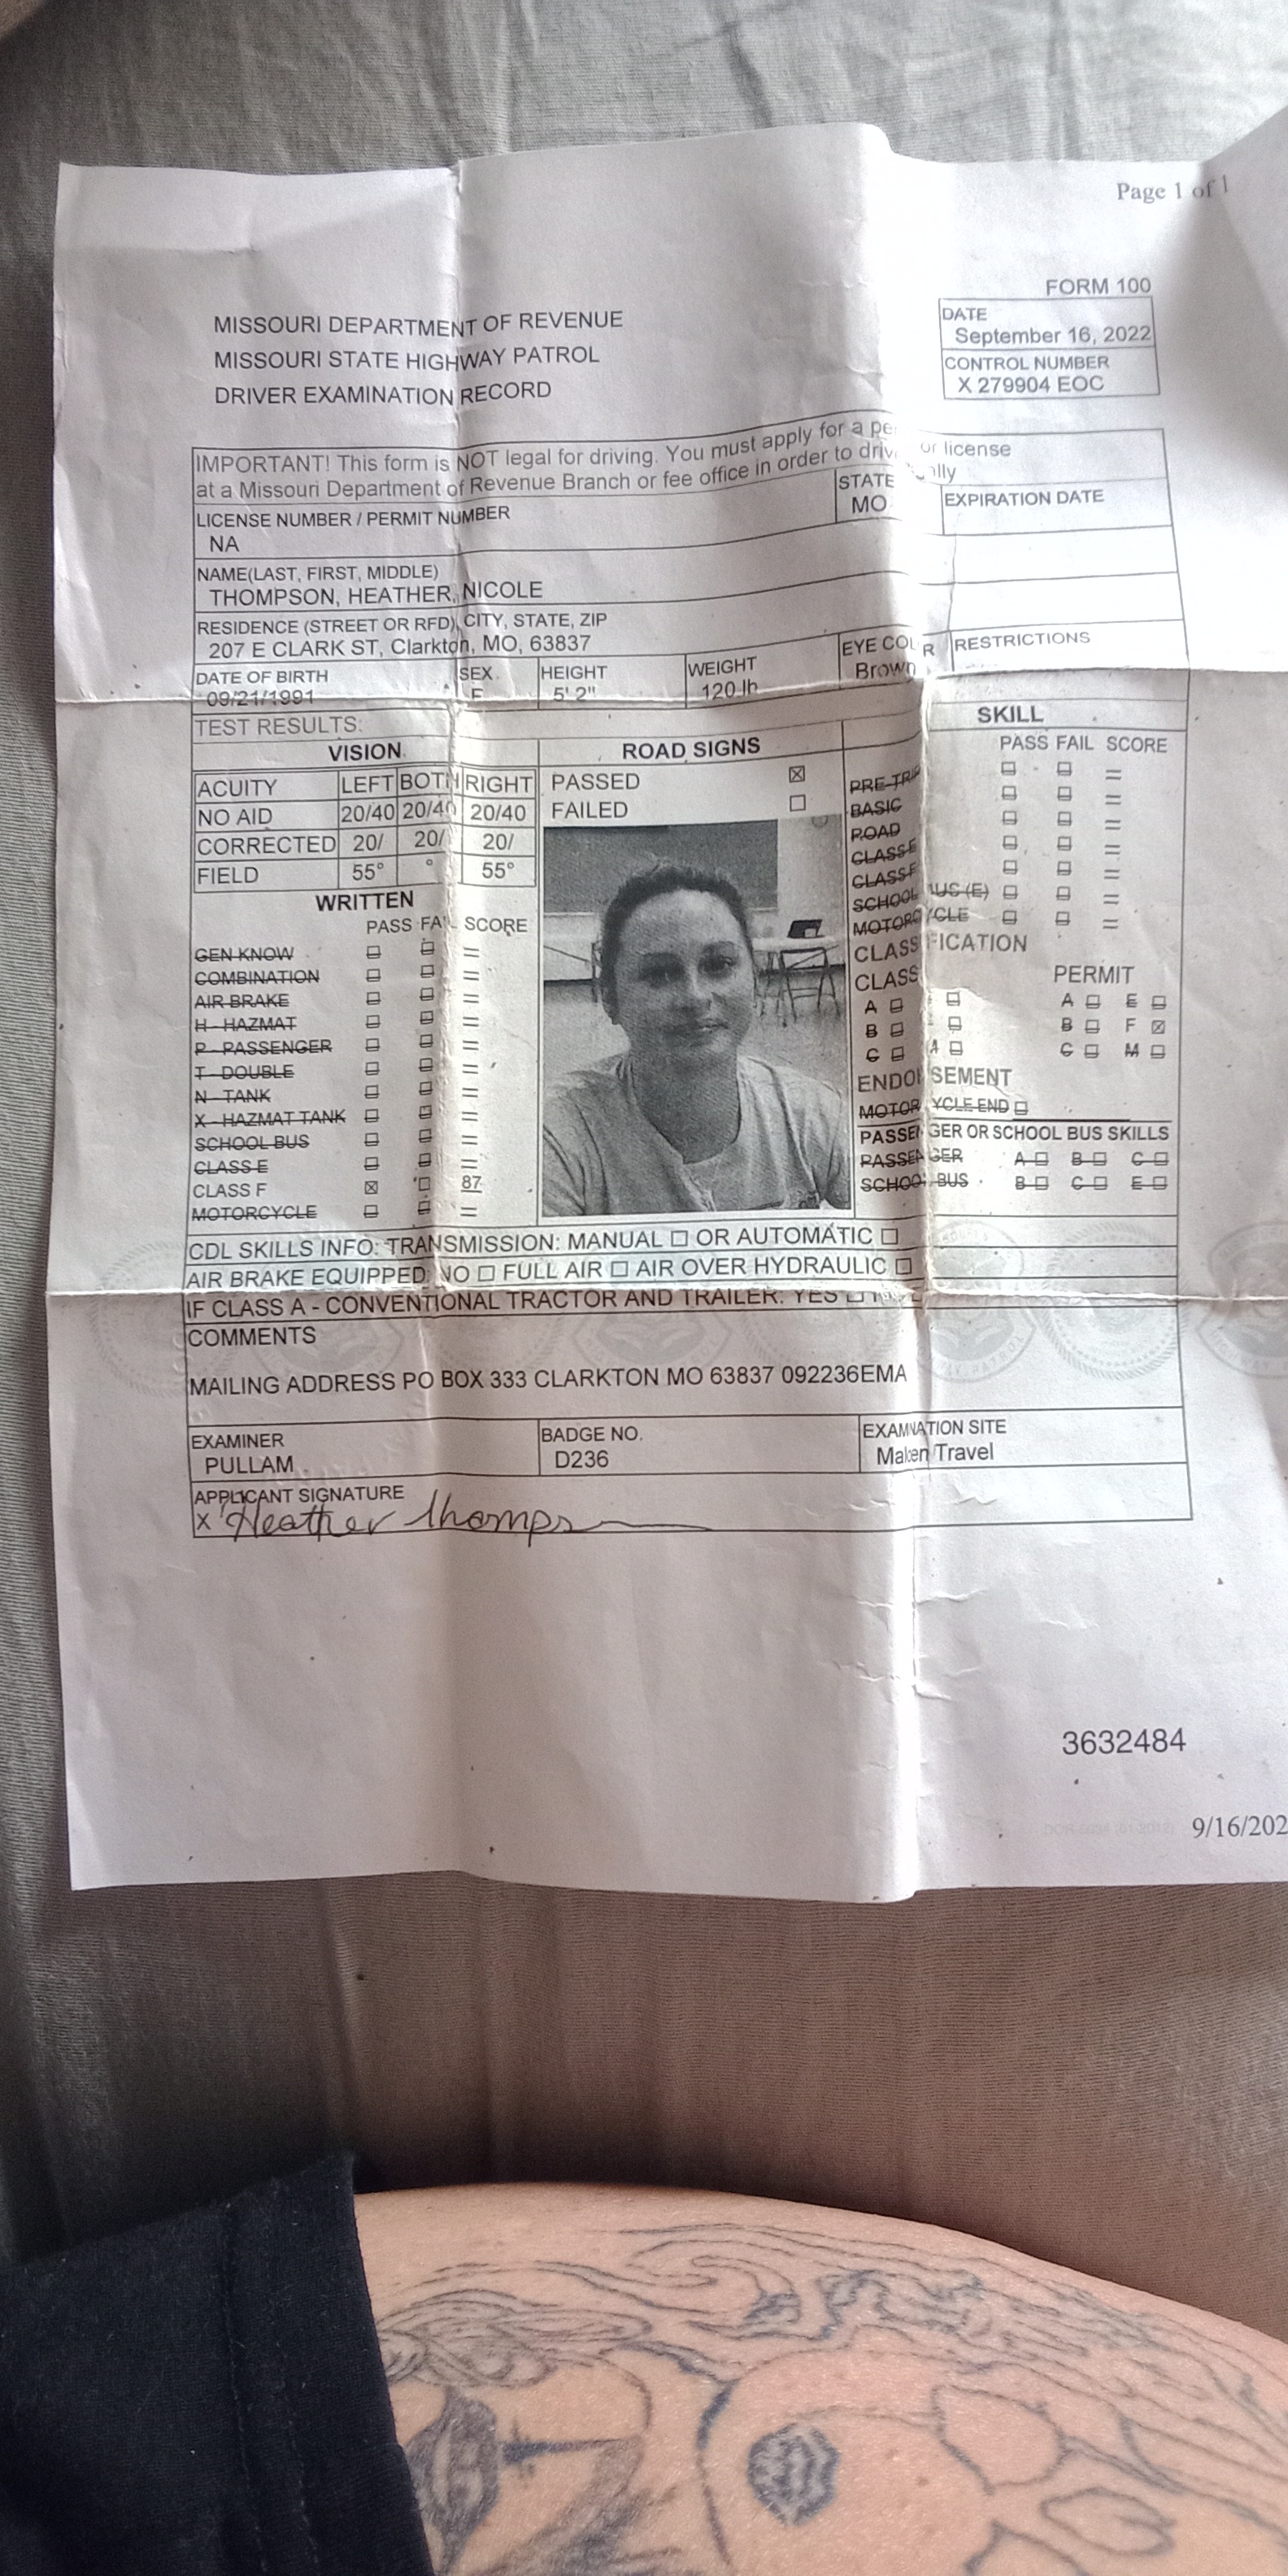 Page 1 of 1
FORM 100
MISSOURI DEPARTMENT OF REVENUE
MISSOURI STATE HIGHWAY PATROL
DRIVER EXAMINATION RECORD
DATE
September 16, 2022
CONTROL NUMBER
X 279904 EOC
IMPORTANT! This form is NOT legal for driving. You must apply for a or license
at a Missouri Department of Revenue Branch or fee office in order to
LICENSE NUMBER / PERMIT NUMBER STATE EXPIRATION DATE
NA MO
NAME(LAST, FIRST, MIDDLE)
THOMPSON, HEATHER, NICOLE
RESIDENCE (STREET OR RFD), CITY, STATE, ZIP
207 E CLARK ST, Clarkton, MO, 63837
DATE OF BIRTH SEX HEIGHT WEIGHT EYE COLOR RESTRICTIONS
09/21/1991 F 5' 2" 120 lb Brown
TEST RESULTS:
VISION
ACUITY LEFT BOTH RIGHT
NO AID 20/40 20/40 20/40
CORRECTED 20/ 20/ 20/
FIELD 55° ° 55°
WRITTEN
PASS FAIL SCORE
GEN KNOW =
COMBINATION =
AIR BRAKE =
H - HAZMAT =
P - PASSENGER =
T - DOUBLE =
N - TANK =
X - HAZMAT TANK =
SCHOOL BUS =
CLASS E =
CLASS F ☒ ☐ 87
MOTORCYCLE =
ROAD SIGNS
PASSED ☒
FAILED ☐
SKILL
PASS FAIL SCORE
PRE-TRIP =
BASIC =
ROAD =
CLASS E =
CLASS F =
SCHOOL BUS (E) =
MOTORCYCLE =
CLASSIFICATION
CLASS PERMIT
A ☐ A ☐ E ☐
B ☐ B ☐ F ☒
C ☐ C ☐ M ☐
ENDORSEMENT
MOTORCYCLE END ☐
PASSENGER OR SCHOOL BUS SKILLS
PASSENGER A ☐ B ☐ C ☐
SCHOOL BUS B ☐ C ☐ E ☐
CDL SKILLS INFO: TRANSMISSION: MANUAL ☐ OR AUTOMATIC ☐
AIR BRAKE EQUIPPED: NO ☐ FULL AIR ☐ AIR OVER HYDRAULIC ☐
IF CLASS A - CONVENTIONAL TRACTOR AND TRAILER: YES ☐
COMMENTS
MAILING ADDRESS PO BOX 333 CLARKTON MO 63837 092236EMA
EXAMINER BADGE NO. EXAMINATION SITE
PULLAM D236 Malden Travel
APPLICANT SIGNATURE
X Heather Thompson
3632484
9/16/202